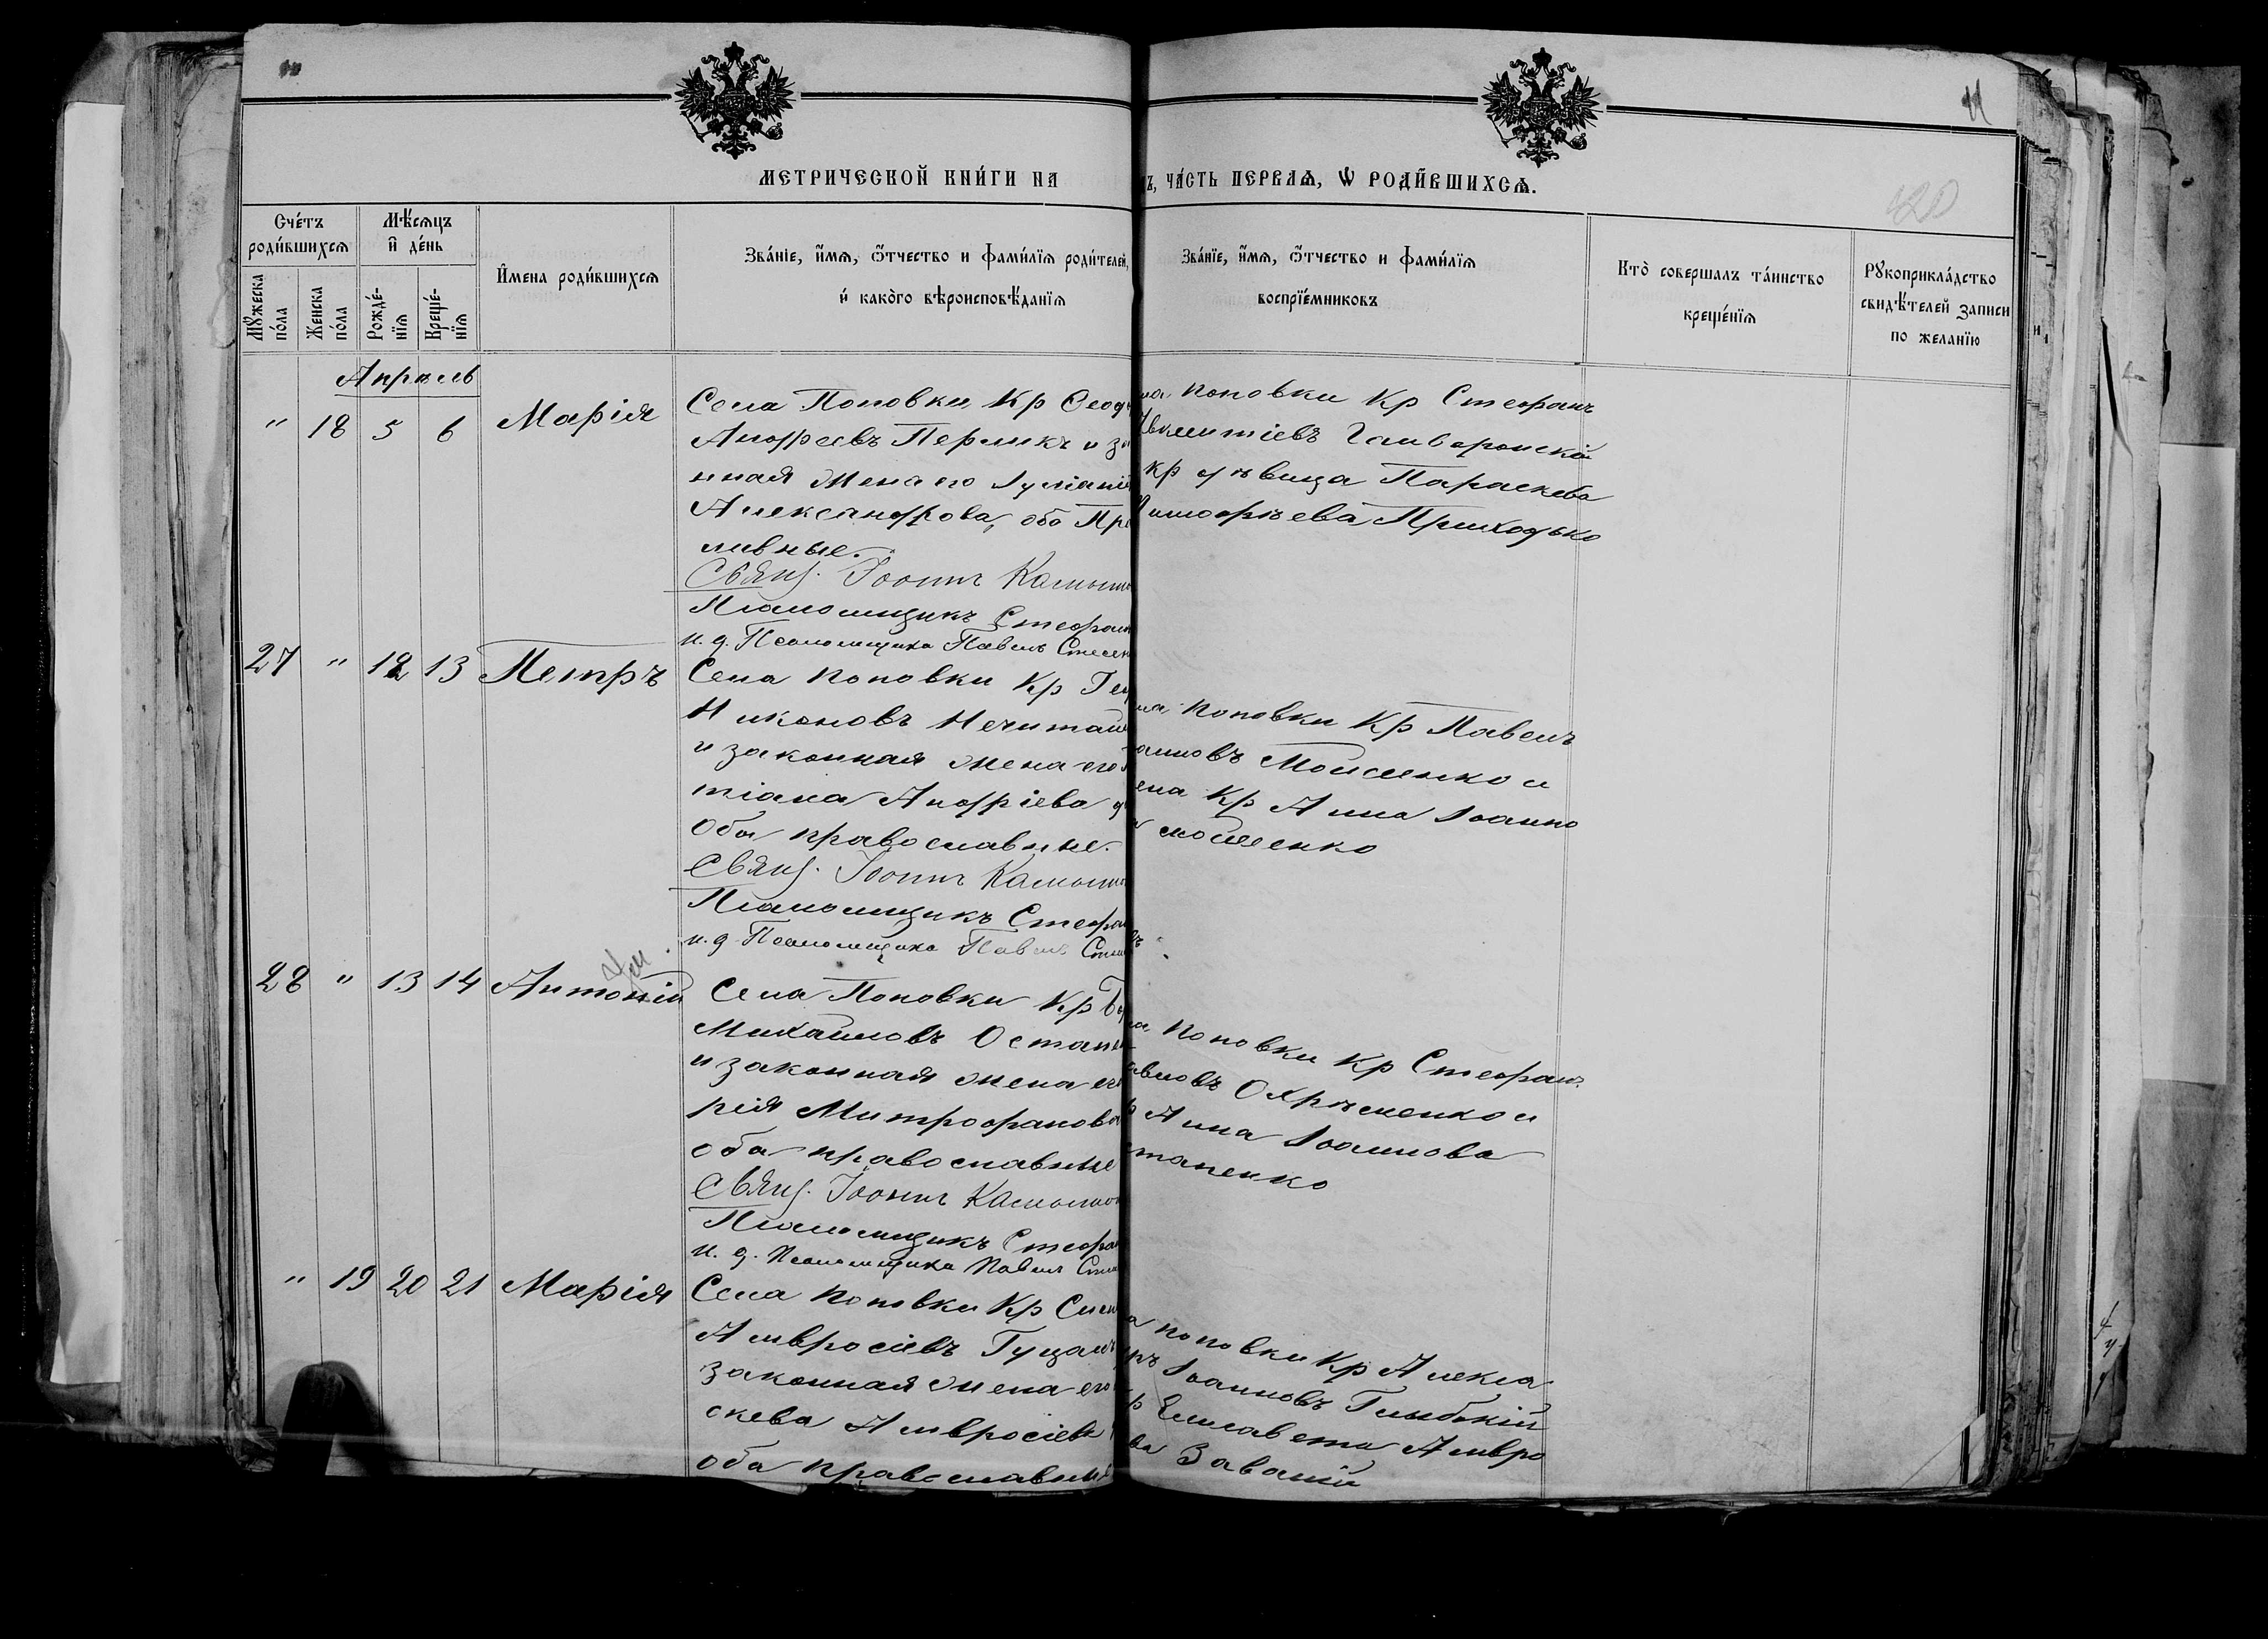 11
420
МЕТРИЧЕСКОЙ КНИ́ГИ НА
Ъ, ЧА́СТЬ ПЕРВАѦ, Ѡ РОДИ́ВШИХСѦ.
Счётъ роди́вшихсѧ
Мѣ́сѧцъ и҆ де́нь
Мꙋжеска по́ла
Женска по́ла
Рожде́-нїѧ
Креще́-нїѧ
И҆мена роди́вшихсѧ
Зва́нїе, и҆́мѧ, ѻ҆́тчество и фами́лїѧ роди́телей,
и҆ како́го вѣроисповѣ́данїѧ
Зва́нїе, и҆́мѧ, ѻ҆́тчество и фами́лїѧ
воспрїе́мниковъ
Кто̀ совершалъ та́инство
креще́нїѧ
Рꙋкоприкла́дство
свидѣ́телей записи
по желанїю
Апрѣль
" 18 5 6 Марія
Села Поповки Кр Ѳеод
Андреевъ Перликъ и за
нная жена его Іуліані
Александрова, оба Пра
лавные.
Свящ. Іоаннъ
Псаломщикъ Стефан
и. д. Псаломщика Павелъ
на Поповки Кр Стефанъ
Гайворонскій
Кр дѣвица Параскева
Тимофѣева Приходько
27 " 12 13 Петръ
Села Поповки Кр Ге
Никоновъ Нечитай
и законная жена его
тіана Андріева
оба православные.
Свящ. Іоаннъ
Псаломщикъ Стефа
и. д. Псаломщика Павелъ
ла Поповки Кр Павелъ
анновъ Мойсенко и
Кр Анна Іоанно
Мойсенко
28 " 13 14 Антоній
Села Поповки Кр
Михайловъ Остапен
и законная жена его
рія Митрофанова
оба православные
Свящ. Іоаннъ
Псаломщикъ Стефан
и. д. Псаломщика Павелъ
ла Поповки Кр Стефанъ
авловъ Охрѣменко и
Анна Іоаннова
стапенко
" 19 20 21 Марія
Села Поповки Кр
Амвросіевъ Гуцал
законная жена его
скева Амвросіева
оба православные
а Поповки Кр Алекса
ръ Іоанновъ
Елисавета Амвро
ва